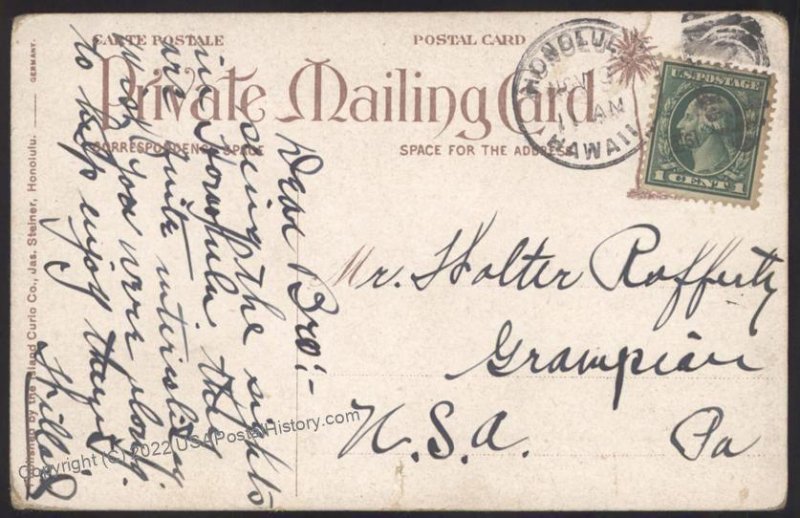 CARTE POSTALE
POSTAL CARD
Private Mailing Card
CORRESPONDENCE SPACE
SPACE FOR THE ADDRESS
HONOLULU
NOV
11 AM
HAWAII
U.S. POSTAGE
1 CENT 1
Dear Bro:-
seeing the sights
in Honolulu they
are quite interesting.
wish you were along
to help enjoy them.
Mr. Walter Rafferty
Grampian
U.S.A. Pa
Published by the Island Curio Co., Jas. Steiner, Honolulu.
GERMANY.
Copyright (C) 2022 USAPostalHistory.com